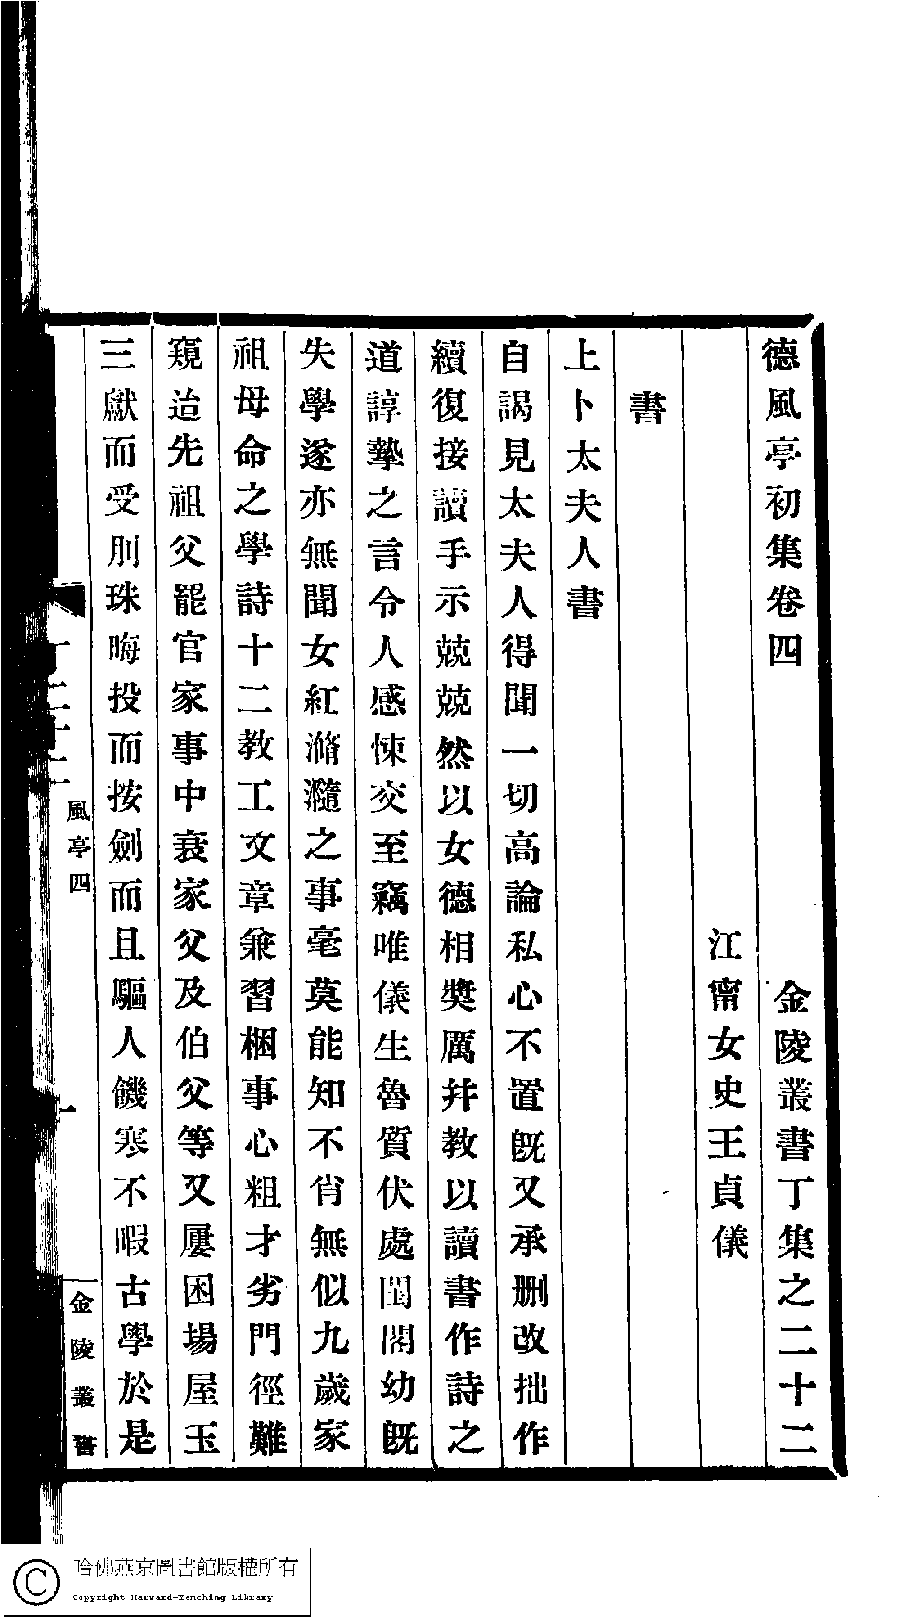 德風亭初集卷四　金陵叢書丁集之二十二
江甯女史王貞儀
書
上卜太夫人書
自謁見太夫人得聞一切高論私心不置旣又承删改拙作
續復接讀手示兢兢然以女德相奬厲幷教以讀書作詩之
道諄摯之言令人感悚交至竊唯儀生魯質伏處閨閣幼旣
失學遂亦無聞女紅滫瀡之事毫莫能知不肖無似九歲家
祖母命之學詩十二教工文章兼習梱事心粗才劣門徑難
窺迨先祖父罷官家事中衰家父及伯父等又屢困場屋玉
三獻而受刖珠晦投而按劍而且驅人饑寒不暇古學於是
風亭四
一
金陵叢書
哈佛燕京圖書館版權所有
Copyright Harvard-Yenching Library